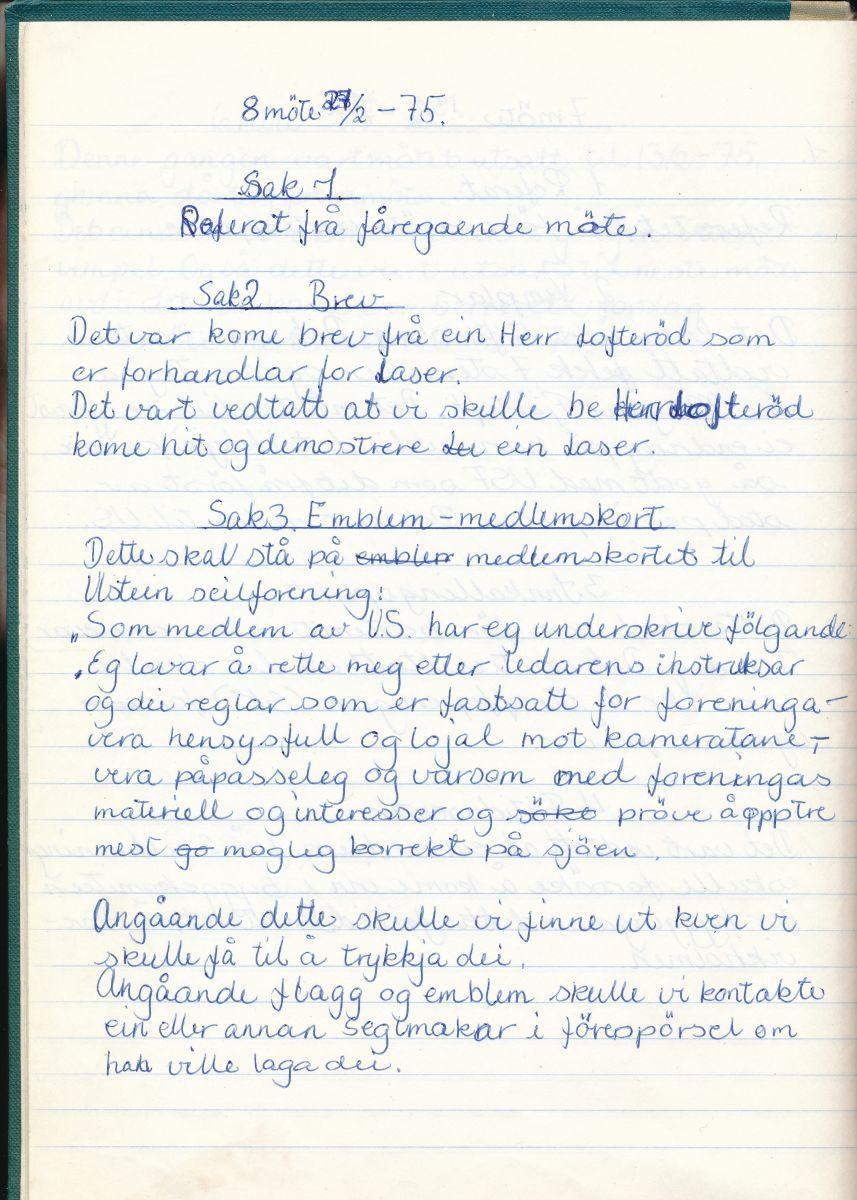 8 möte 27/2 - 75.
Sak 1.
Referat frå føregaende møte.
Sak 2 Brev
Det var kome brev frå ein Herr Lofteröd som
er forhandlar for Laser.
Det vart vedtatt at vi skulle be Herr Lofteröd
kome hit og demostrere ein Laser.
Sak 3. Emblem - medlemskort
Dette skal stå på emblem medlemskortet til
Utstein seilforening:
„Som medlem av U.S. har eg underskrive fölgande:
„Eg lovar å rette meg etter ledarens instruksar
og dei reglar som er fastsatt for foreninga -
vera hensysfull og lojal mot kameratane, -
vera påpasseleg og varsom med foreningas
materiell og interesser og söke pröve å opptre
mest go mogleg korrekt på sjöen.
Angåande dette skulle vi finne ut kven vi
skulle få til å trykkja dei.
Angåande flagg og emblem skulle vi kontakte
ein eller annan seglmakar i förespörsel om
han ville laga dei.